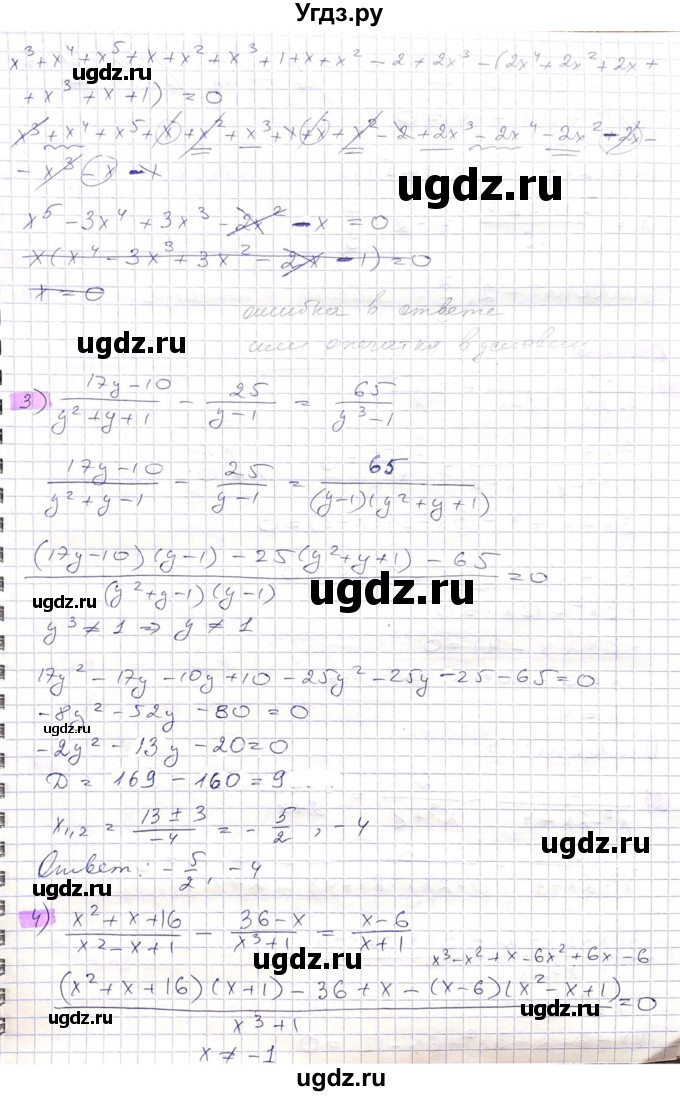 Угдз.ру
x³ + x⁴ + x⁵ + x + x² + x³ + 1 + x + x² - 2 + 2x³ - (2x⁴ + 2x² + 2x +
ugdz.ru
+ x³ + x + 1) = 0
x³ + x⁴ + x⁵ + x + x² + x³ + 1 + x + x² - 2 + 2x³ - 2x⁴ - 2x² - 2x -
- x³ - x - 1
ugdz.ru
x⁵ - 3x⁴ + 3x³ - 2x² - x = 0
x(x⁴ - 3x³ + 3x² - 2x - 1) = 0
ugdz.ru
x = 0
ошибка в ответе
или опечатка в условии
ugdz.ru
3) (17y-10)/(y²+y+1) - 25/(y-1) = 65/(y³-1)
(17y-10)/(y²+y-1) - 25/(y-1) = 65/((y-1)(y²+y+1))
((17y-10)(y-1) - 25(y²+y+1) - 65)/((y²+y-1)(y-1)) = 0
ugdz.ru
ugdz.ru
y³ ≠ 1 ⇒ y ≠ 1
17y² - 17y - 10y + 10 - 25y² - 25y - 25 - 65 = 0
-8y² - 52y - 80 = 0
ugdz.ru
-2y² - 13y - 20 = 0
D = 169 - 160 = 9
x₁,₂ = (13 ± 3)/(-4) = - 5/2 , -4
ugdz.ru
Ответ: - 5/2, -4
4) (x²+x+16)/(x²-x+1) - (36-x)/(x³+1) = (x-6)/(x+1)
ugdz.ru
x³ - x² + x - 6x² + 6x - 6
((x²+x+16)(x+1) - 36 + x - (x-6)(x²-x+1))/(x³+1) = 0
ugdz.ru
ugdz.ru
x ≠ -1
ugdz.ru